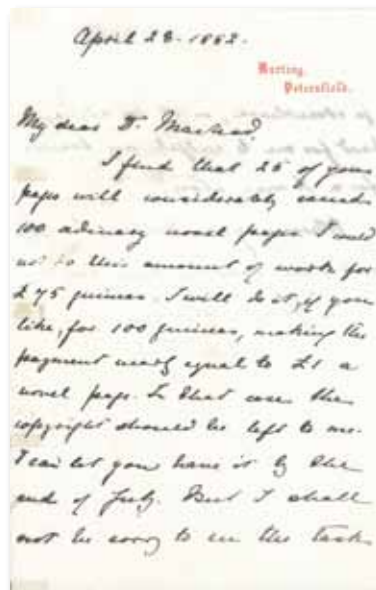 April 28. 1882.
Harting,
Petersfield.
My dear Dr. Macleod,
I find that 25 of your
pages will considerably exceed
100 ordinary novel pages. I could
not do this amount of work for
£75 guineas. I will do it, if you
like, for 100 guineas, making the
payment nearly equal to £1 a
novel page. In that case the
copyright should be left to me.
I can let you have it by the
end of July. But I shall
not be sorry to see the task